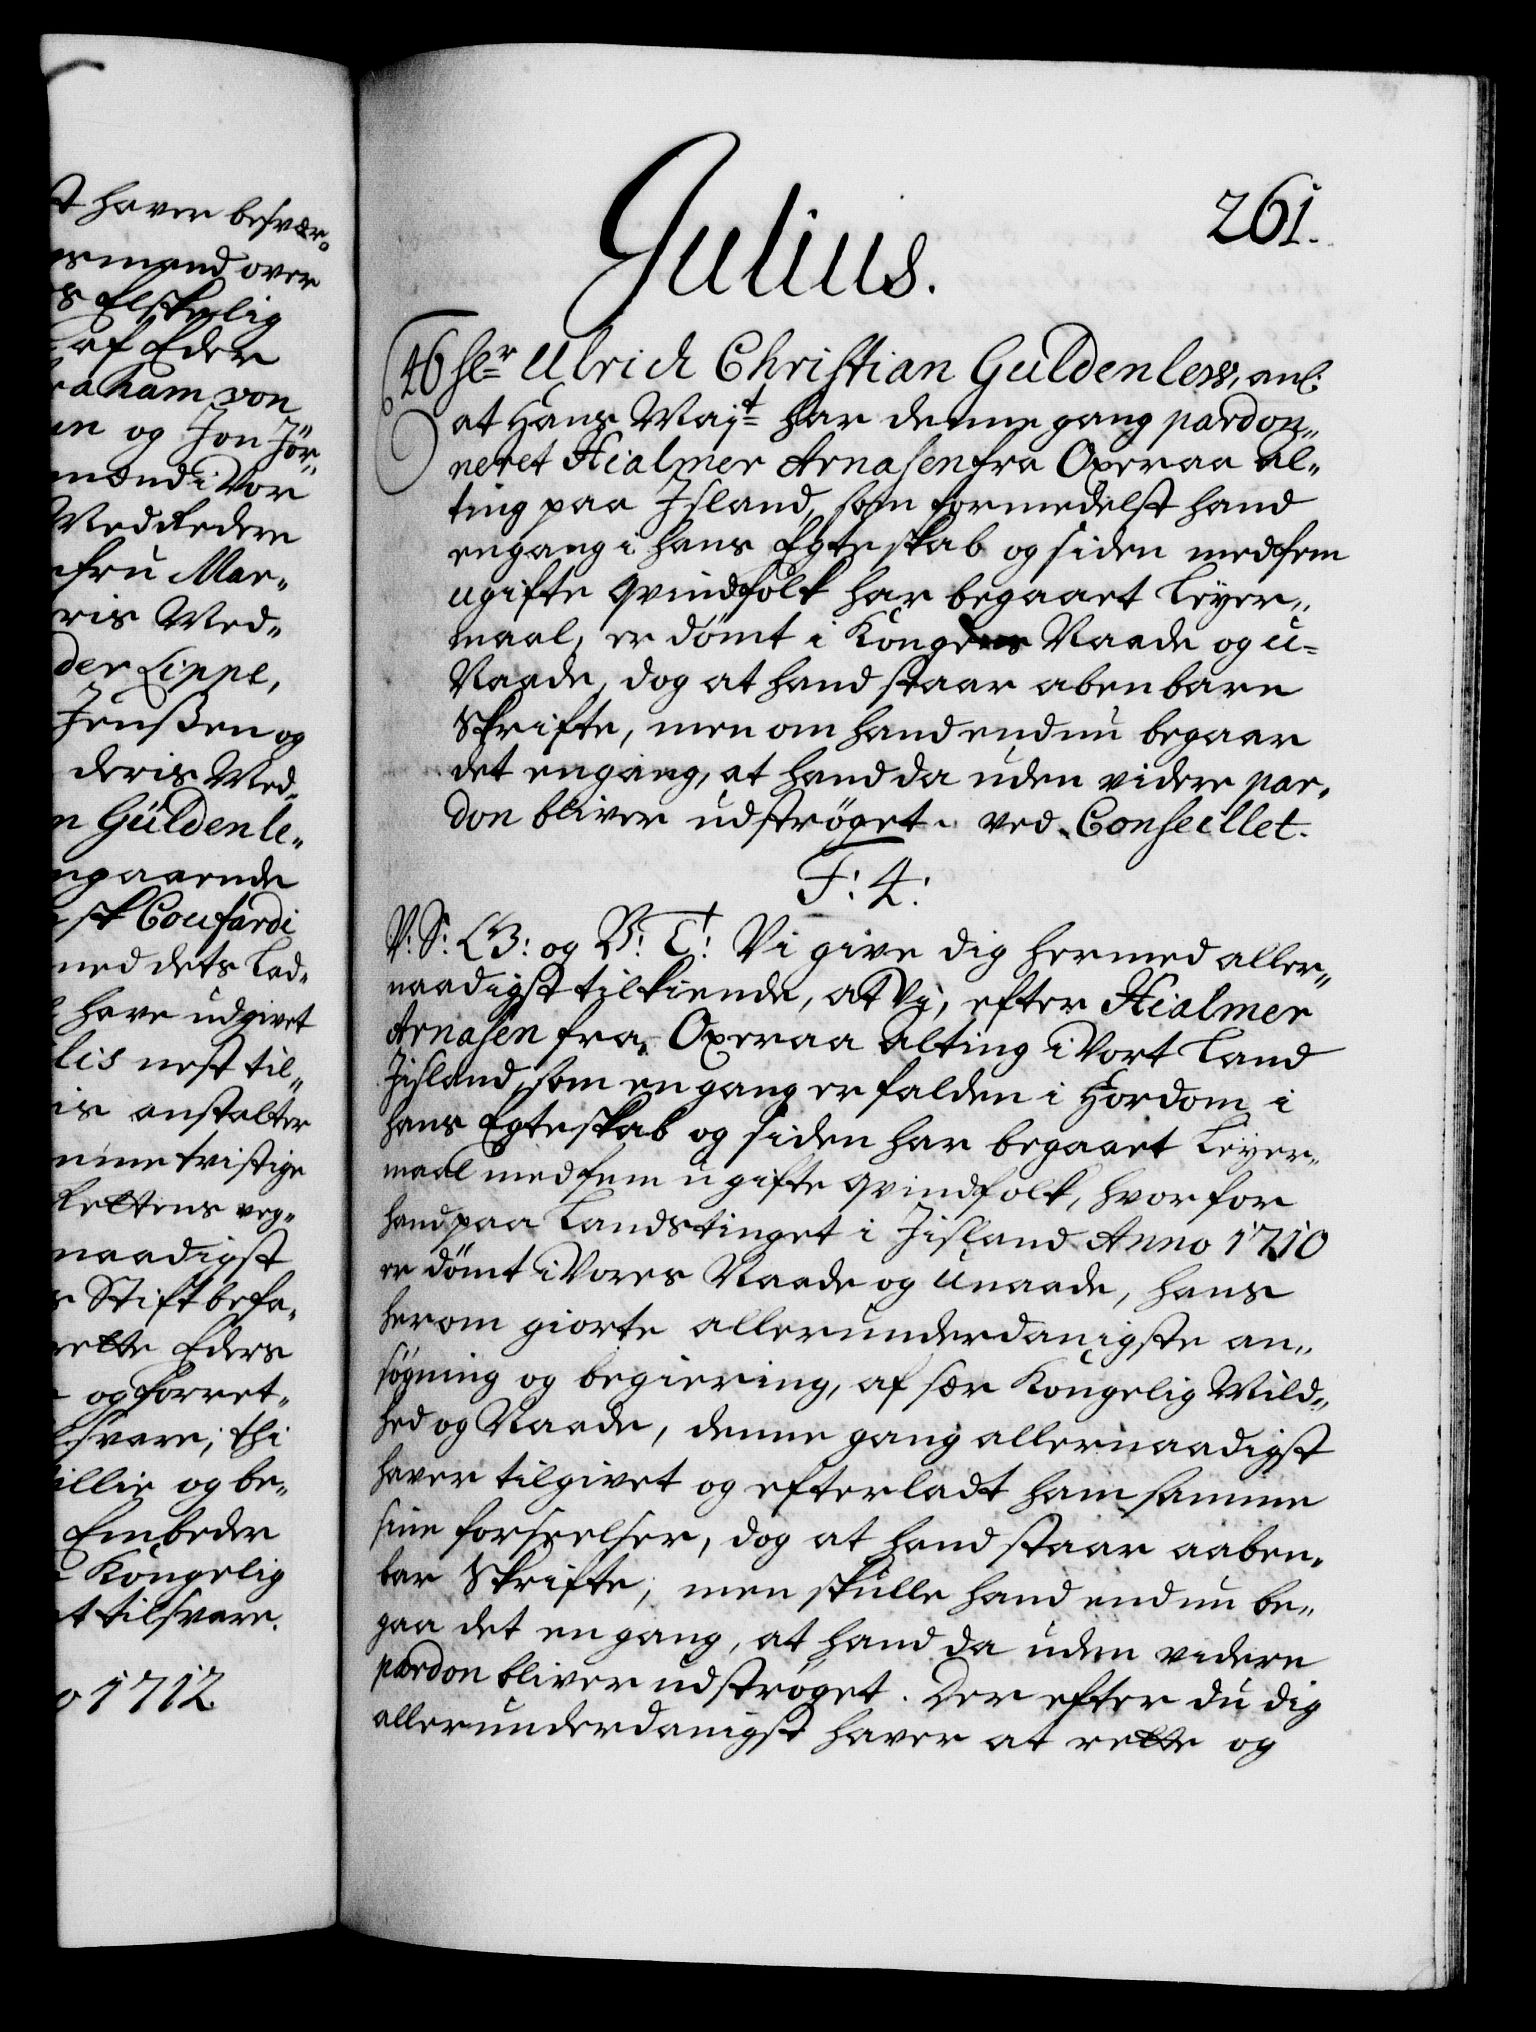 t haver besvær¬
smand over
s Elskelig
af Eder
raham von
en og Jon Jör¬
mænd i Vor
Medredere
fru Mar¬
ris Med¬
der Lippe,
Jensßen og
deris Med¬
n Güldenle¬
ngaaende
sk Coufardi
med dets Lad¬
have udgivet
lis nest til¬
is anstalter
nine tristige
Rettens veg¬
naadigst
s Stiftbefa¬
rette Eders
og forret¬
svare; thi
villie og be¬
Embeder
Kongelig
t tilsvare.
o 1712.
Julius.
261.
46 Hr Ulrich Christian Güldenlew, anl:
at Hans Mayt har denne gang pardon¬
neret Hialmer Arnasen fra Oxeraa al¬
ting paa Jsland, som formedelst hand
engang i hans Egteskab og siden med fem
ugifte qvindfolk har begaaet Leyer¬
maal, er dömt i Kongens Naade og u¬
Naade, dog at hand staar aabenbare
Skrifte, men om hand endnu begaar
det engang, at hand da uden videre par¬
don bliver udströget. ved Conseillet.
F: 4:
V: S: G: og B: T: Vi give dig hermed aller¬
naadigst tilkiende, at Vj, efter Hialmer
Arnasen fra Oxeraa alting i Vort Land
Jisland, som engang er falden i Hordom i
hans Egteskab og siden har begaaet Leyer¬
maal med fem ugifte qvindfolk, hvorfor
hand paa Landstinget i Jisland Anno 1710
er dömt i Vores Naade og Unaade, hans
herom giorte allerunderdanigste an¬
søgning og begiering, af sær Kongelig Mild¬
hed og Naade, denne gang allernaadigst
haver tilgivet og efterladt ham samme
sine forseelser, dog at hand staar aaben¬
bar Skrifte; men skulle hand endnu be¬
gaa det engang, at hand da uden videre
pardon bliver udströget. Der efter du dig
allerunderdanigst haver at rette og